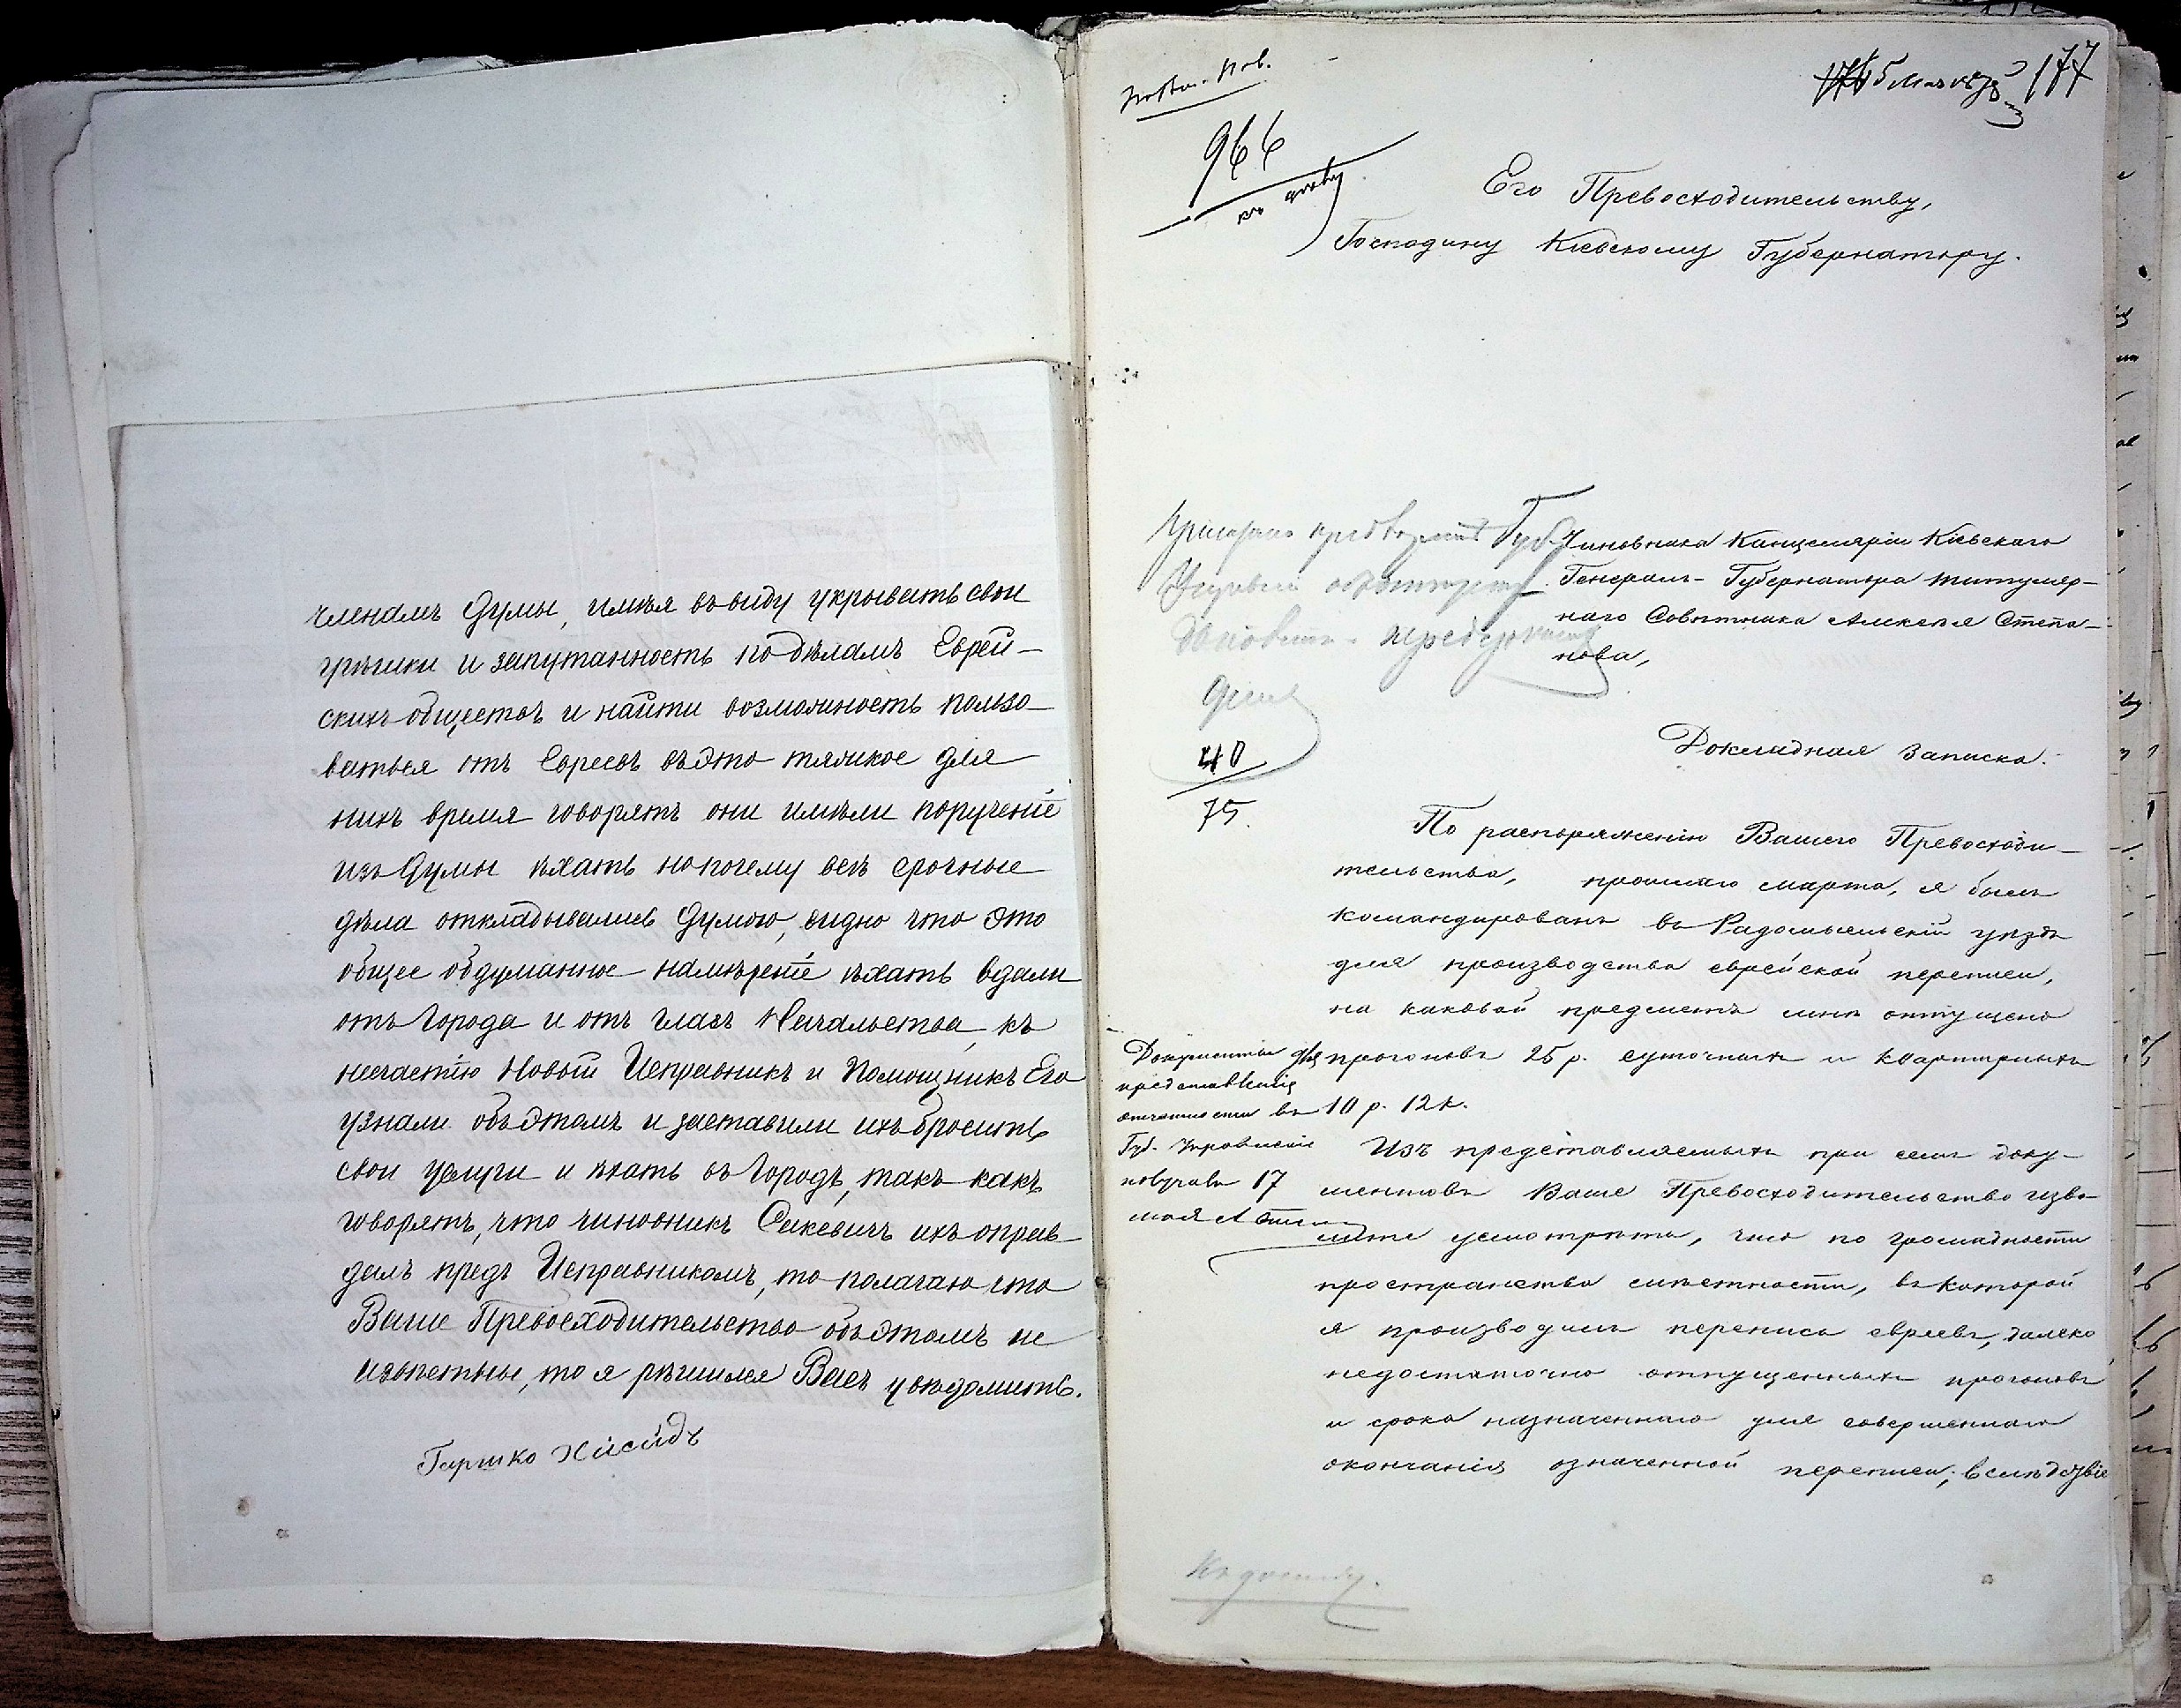 членамъ Думы, имѣя въ виду укрывать свои
грѣшки и запутанность по дѣламъ Еврей-
скихъ обществъ и найти возможность пользо-
ваться отъ Евреевъ въ это тяжкое для
нихъ время говорятъ они имѣли порученіе
изъ Думы ѣхать но почему всѣ срочные
дѣла откладывались Думою, видно что это
общее обдуманное намѣреніе ѣхать вдали
отъ Города и отъ глазъ Начальства, къ
несчастію Новый Исправникъ и Помощникъ Его
узнали объ этомъ и заставили ихъ бросить
свои услуги и ѣхать въ Городъ, такъ какъ
говорятъ, что чиновникъ Сикевичъ ихъ оправ-
далъ предъ Исправникомъ, то полагаю что
Ваше Превосходительство объ этомъ не
извѣстны, то я рѣшился Васъ увѣдомить.
Гершко Хисидъ
177
966
Его Превосходительству,
Господину Кіевскому Губернатору.
Чиновника Канцеляріи Кіевскаго
Генералъ-Губернатора титуляр-
наго Совѣтника Алексѣя Степа-
нова,
40
75.
Докладная записка.
По распоряженію Вашего Превосходи-
тельства, прошлаго марта, я былъ
командированъ въ Радомысльскій уѣздъ
для производства еврейской переписи,
на каковой предметъ мнѣ отпущено
прогоновъ 25 р. суточныхъ и квартирныхъ
10 р. 12 к.
Документы для
представленія
отчетности въ
Губ. Правленіе
получилъ 17
мая А Степ
Изъ представляемыхъ при семъ доку-
ментовъ Ваше Превосходительство изво-
лите усмотрѣть, что по громадности
пространства мѣстности, въ которой
я производилъ перепись евреевъ, далеко
недостаточно отпущенныхъ прогоновъ
и срока назначеннаго для совершеннаго
окончанія означенной переписи; вслѣдствіе
Къ докладу.